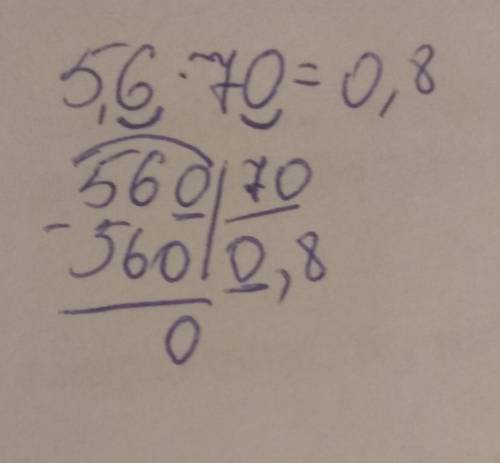 5,6 · 70 = 0,8
560 | 70
- 560 | 0,8
0